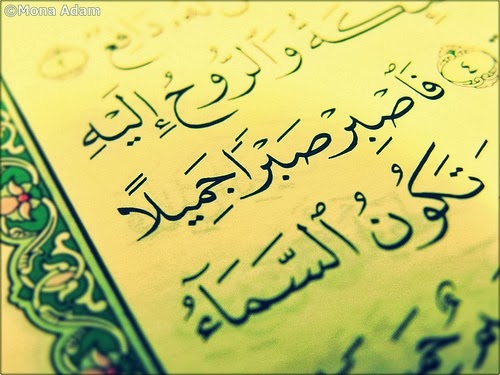 ©Mona Adam
دَافِعٌ
وَالرُّوحُ إِلَيْهِ
٤ فَاصْبِرْ صَبْرًا جَمِيلًا
تَكُونُ السَّمَآءُ